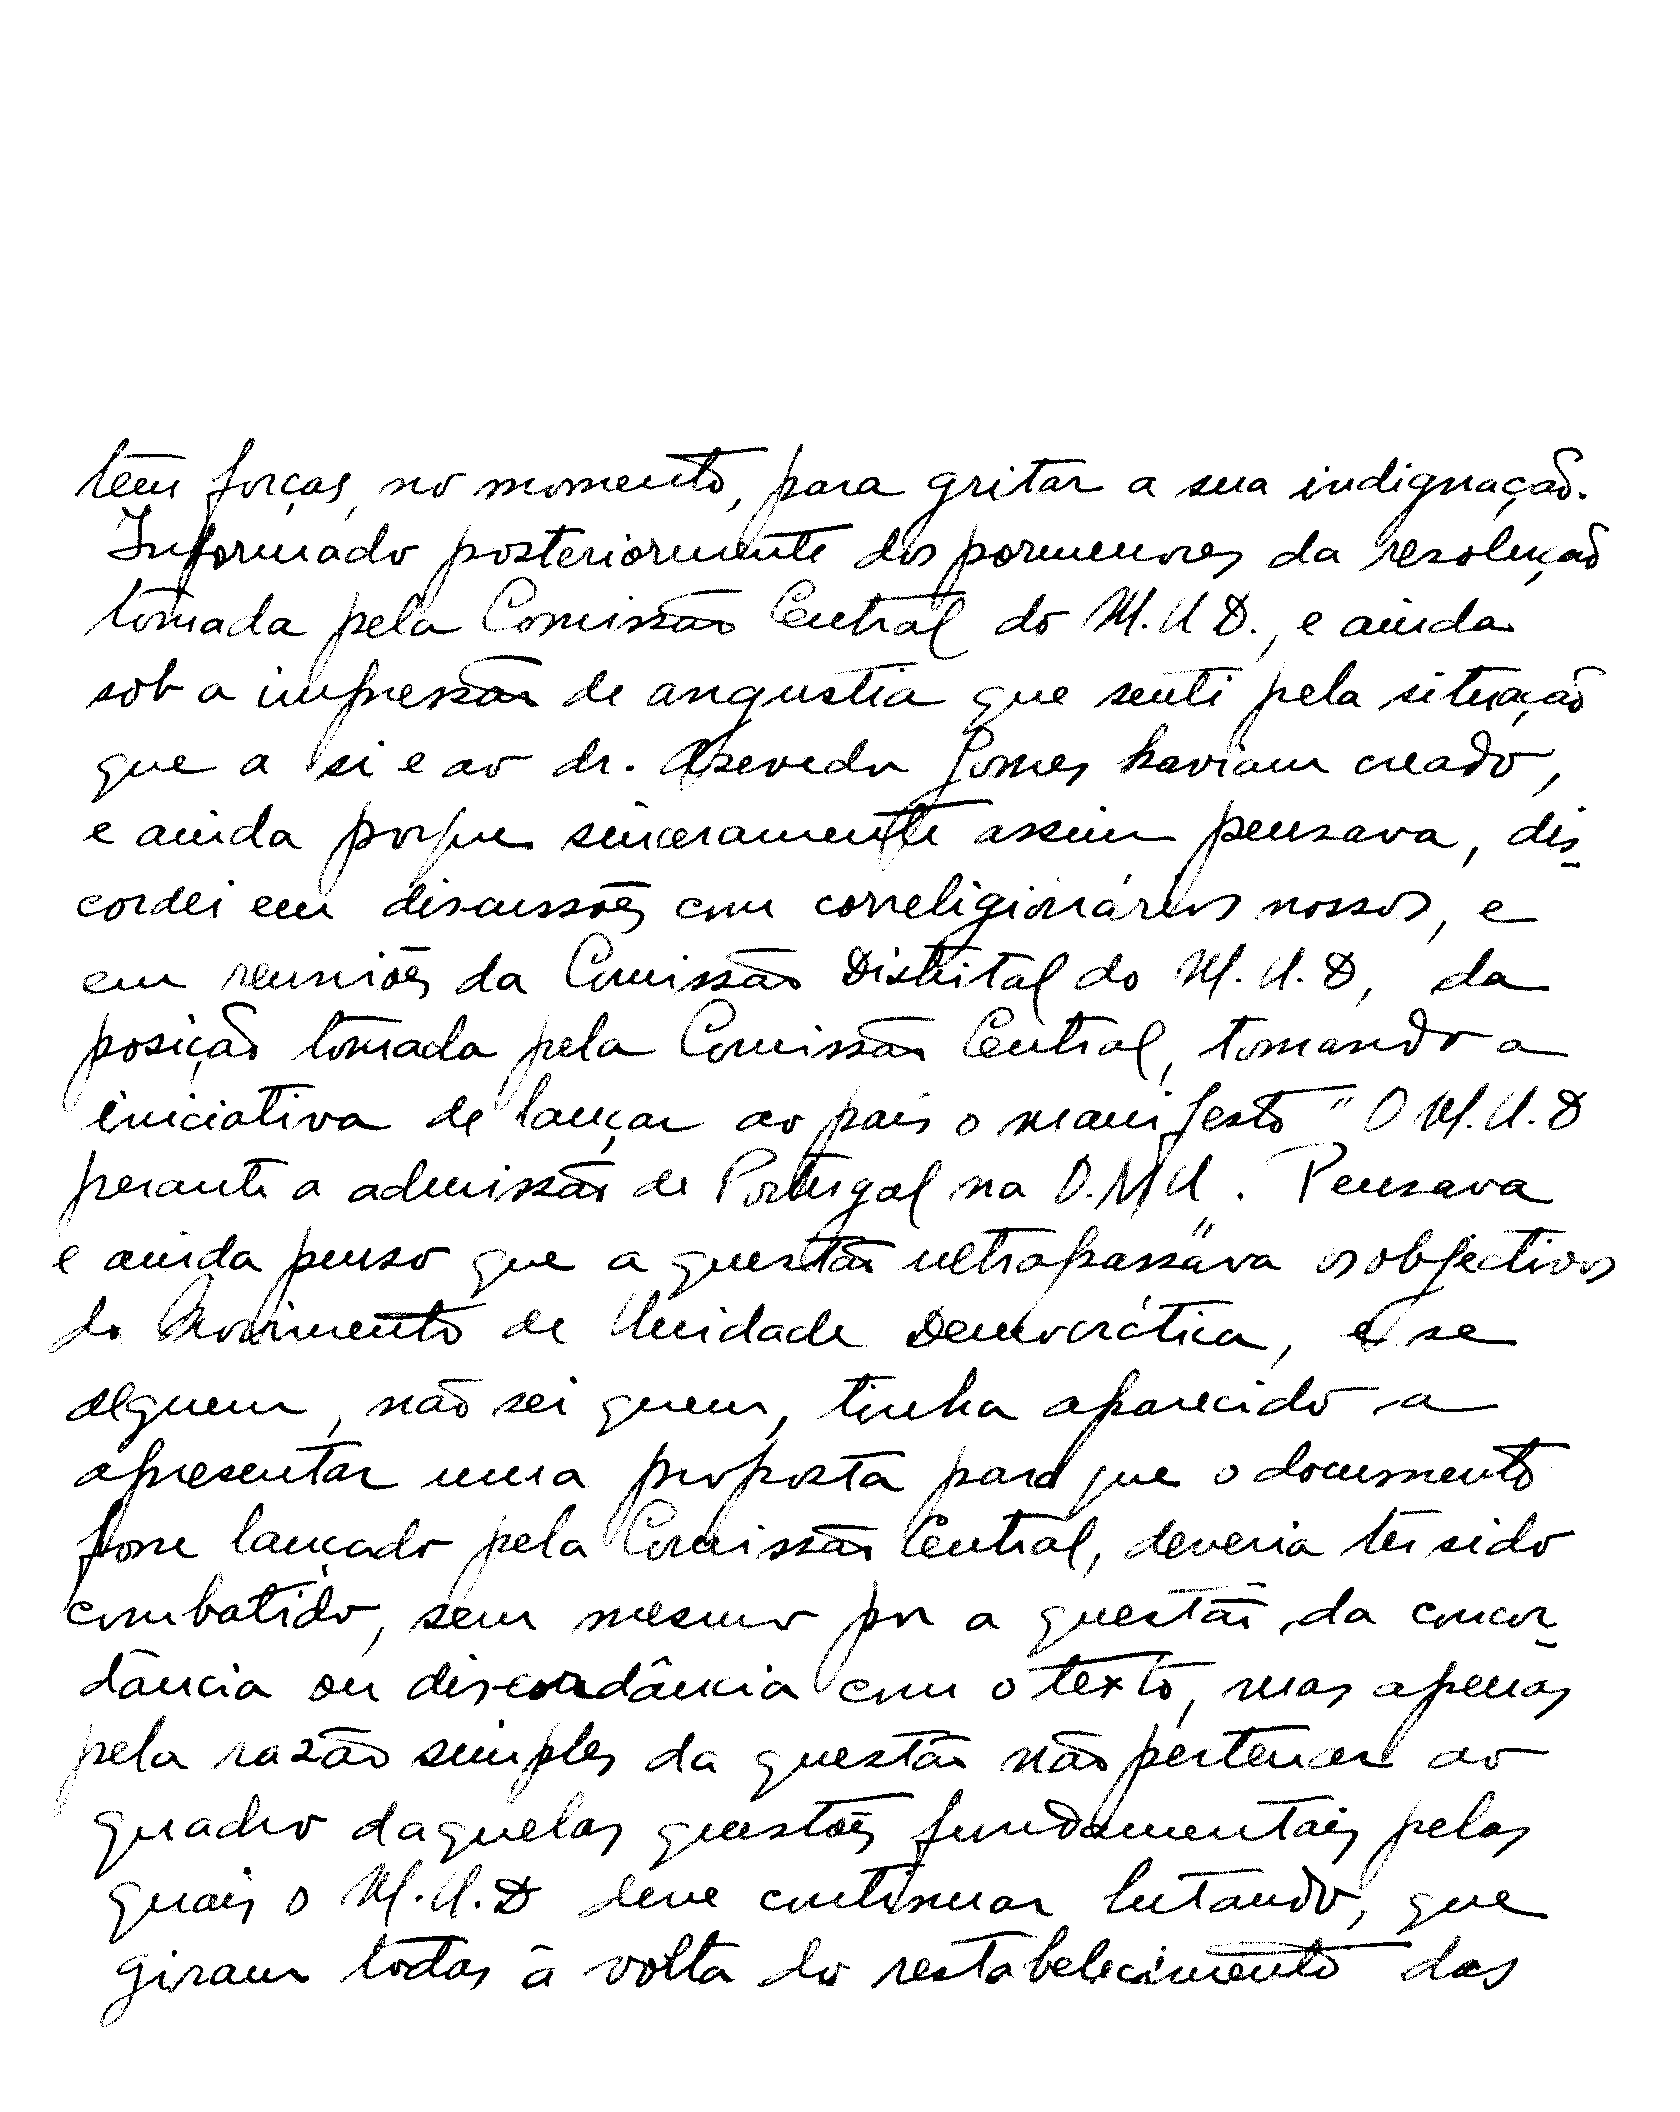 têm forças, no momento, para gritar a sua indignação.
Informado posteriormente dos pormenores da resolução
tomada pela Comissão Central do M.U.D., e ainda
sob a impressão de angustia que senti pela situação
que a si e ao dr. Azevedo Gomes haviam creado,
e ainda porque sinceramente assim pensava, dis-
cordei em discussões com correligionários nossos, e
em reuniões da Comissão Distrital do M.U.D, da
posição tomada pela Comissão Central, tomando a
iniciativa de lançar ao país o manifesto "O M.U.D
perante a admissão de Portugal na O.N.U". Pensava
e ainda penso que a questão ultrapassava os objectivos
do Movimento de Unidade Democrática, e se
alguem, não sei quem, tinha aparecido a
apresentar uma proposta para que o documento
fosse lançado pela Comissão Central, deveria ter sido
combatido, sem mesmo por a questão da concor-
dância ou discordância com o texto, mas apenas
pela razão simples da questão não pertencer ao
quadro daquelas questões fundamentais pelas
quais o M.U.D deve continuar lutando, que
giram todas à volta do restabelecimento das